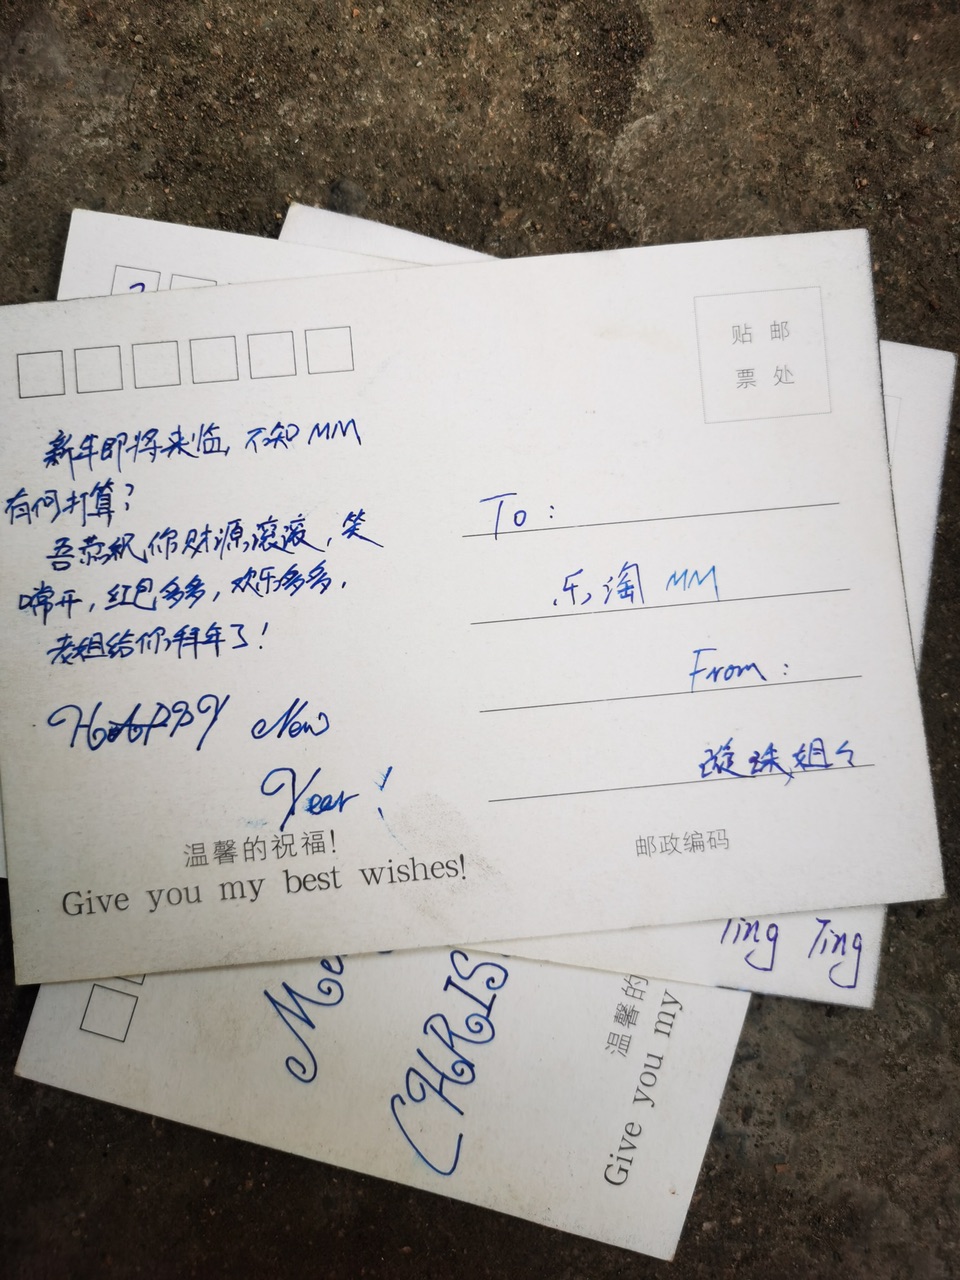 贴 邮
票 处
新年即将来临,不知MM
有何打算?
吾恭祝你财源滚滚,笑
嘴常开,红包多多,欢乐多多,
老姐给你拜年了!
HAPPY New
Year!
To:
乐淘 MM
From:
璇珠姐々
温馨的祝福!
Give you my best wishes!
邮政编码
Ting Ting
Me
CHRIS
温馨的
Give you my